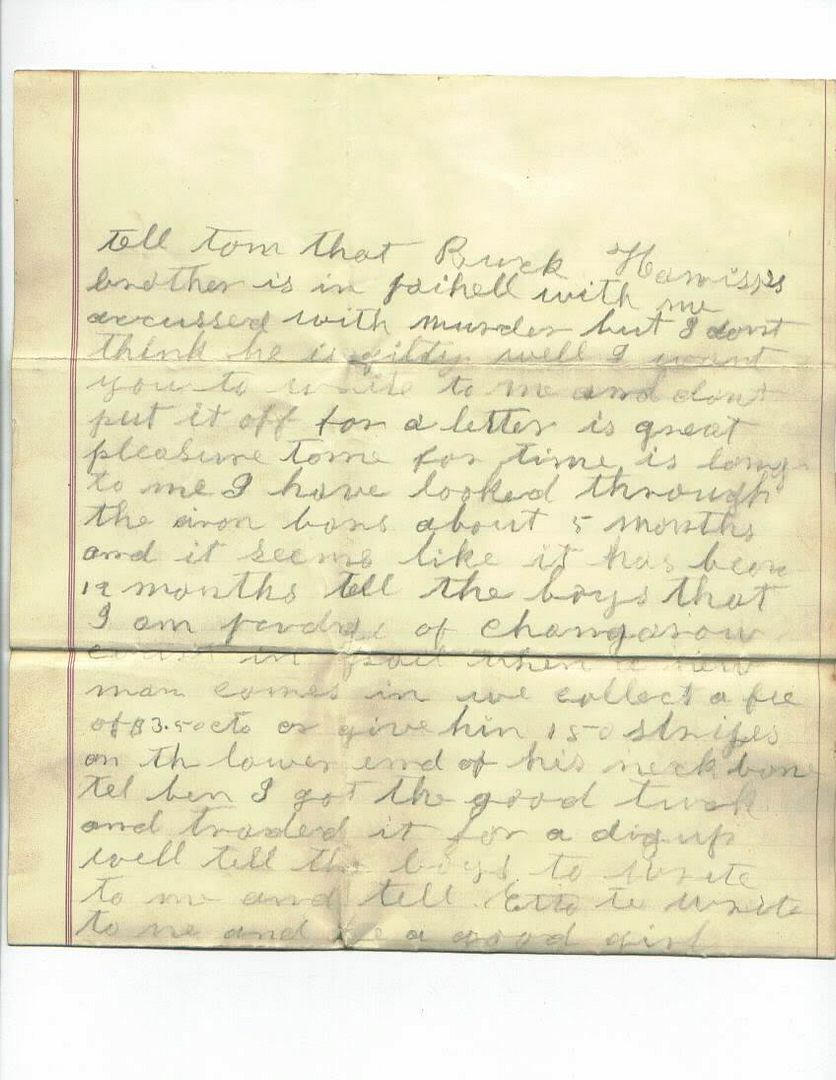 tell tom that Buck Harriss,s
brother is in jaihell with me
accussed with murder but I dont
think he is gilty well I want
you to write to me and dont
put it off for a letter is great
pleasure tome for time is long
to me I have looked through
the iron bars about 5 months
and it seems like it has been
12 months tell the boys that
I am of
in jail when a new
man comes in we collect a fee
of $3.50cts or give him 150 stripes
on th lower end of his neck bone
tel ben I got the good
and traded it for a dig up
well tell the boys to write
to me and tell Etta to write
to me and be a good girl